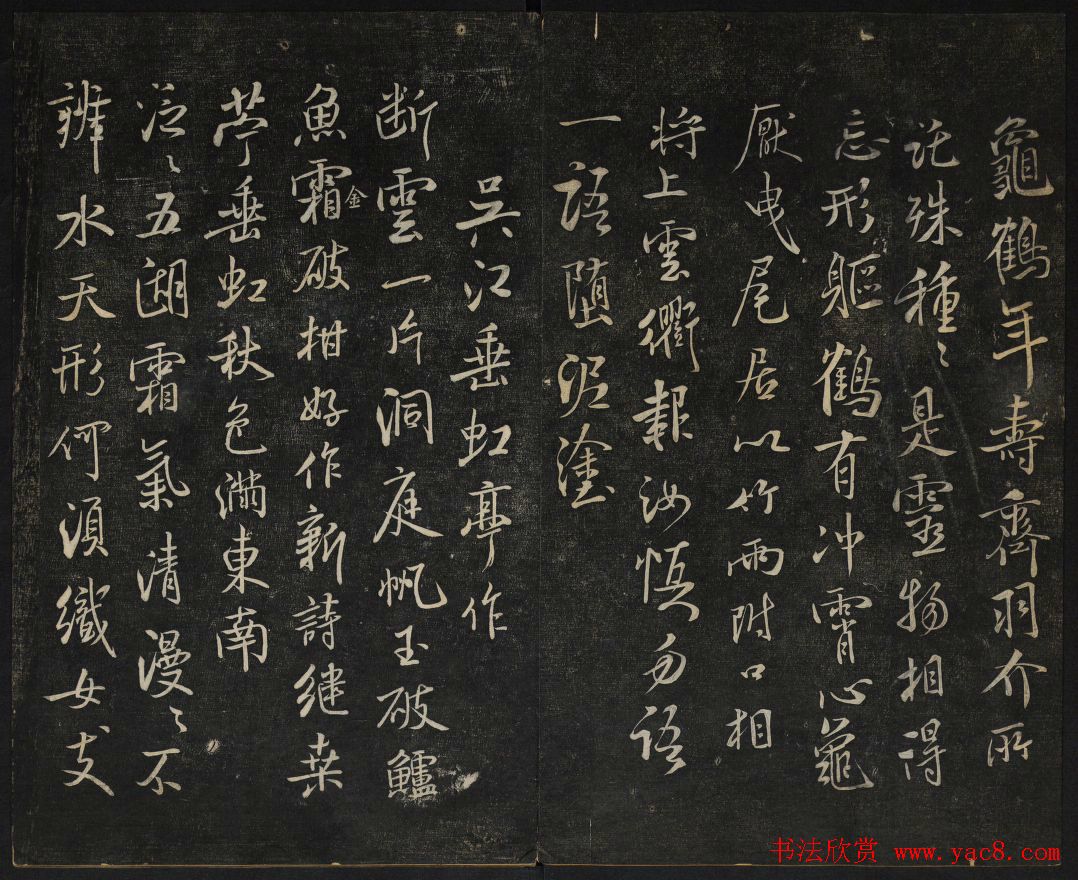 龜鶴年壽齊羽介所
託殊種〻是靈物相得
忘形軀鶴有冲霄心龜
厭曳尾居以竹兩附口相
将上雲衢報汝慎勿語
一語堕泥塗
吳江垂虹亭作
断雲一片洞庭帆玉破鱸
魚霜金破柑好作新詩継桒
苧垂虹秋色滿東南
泛〻五湖霜氣清漫〻不
辨水天形何須織女支
书法欣赏 www.yac8.com